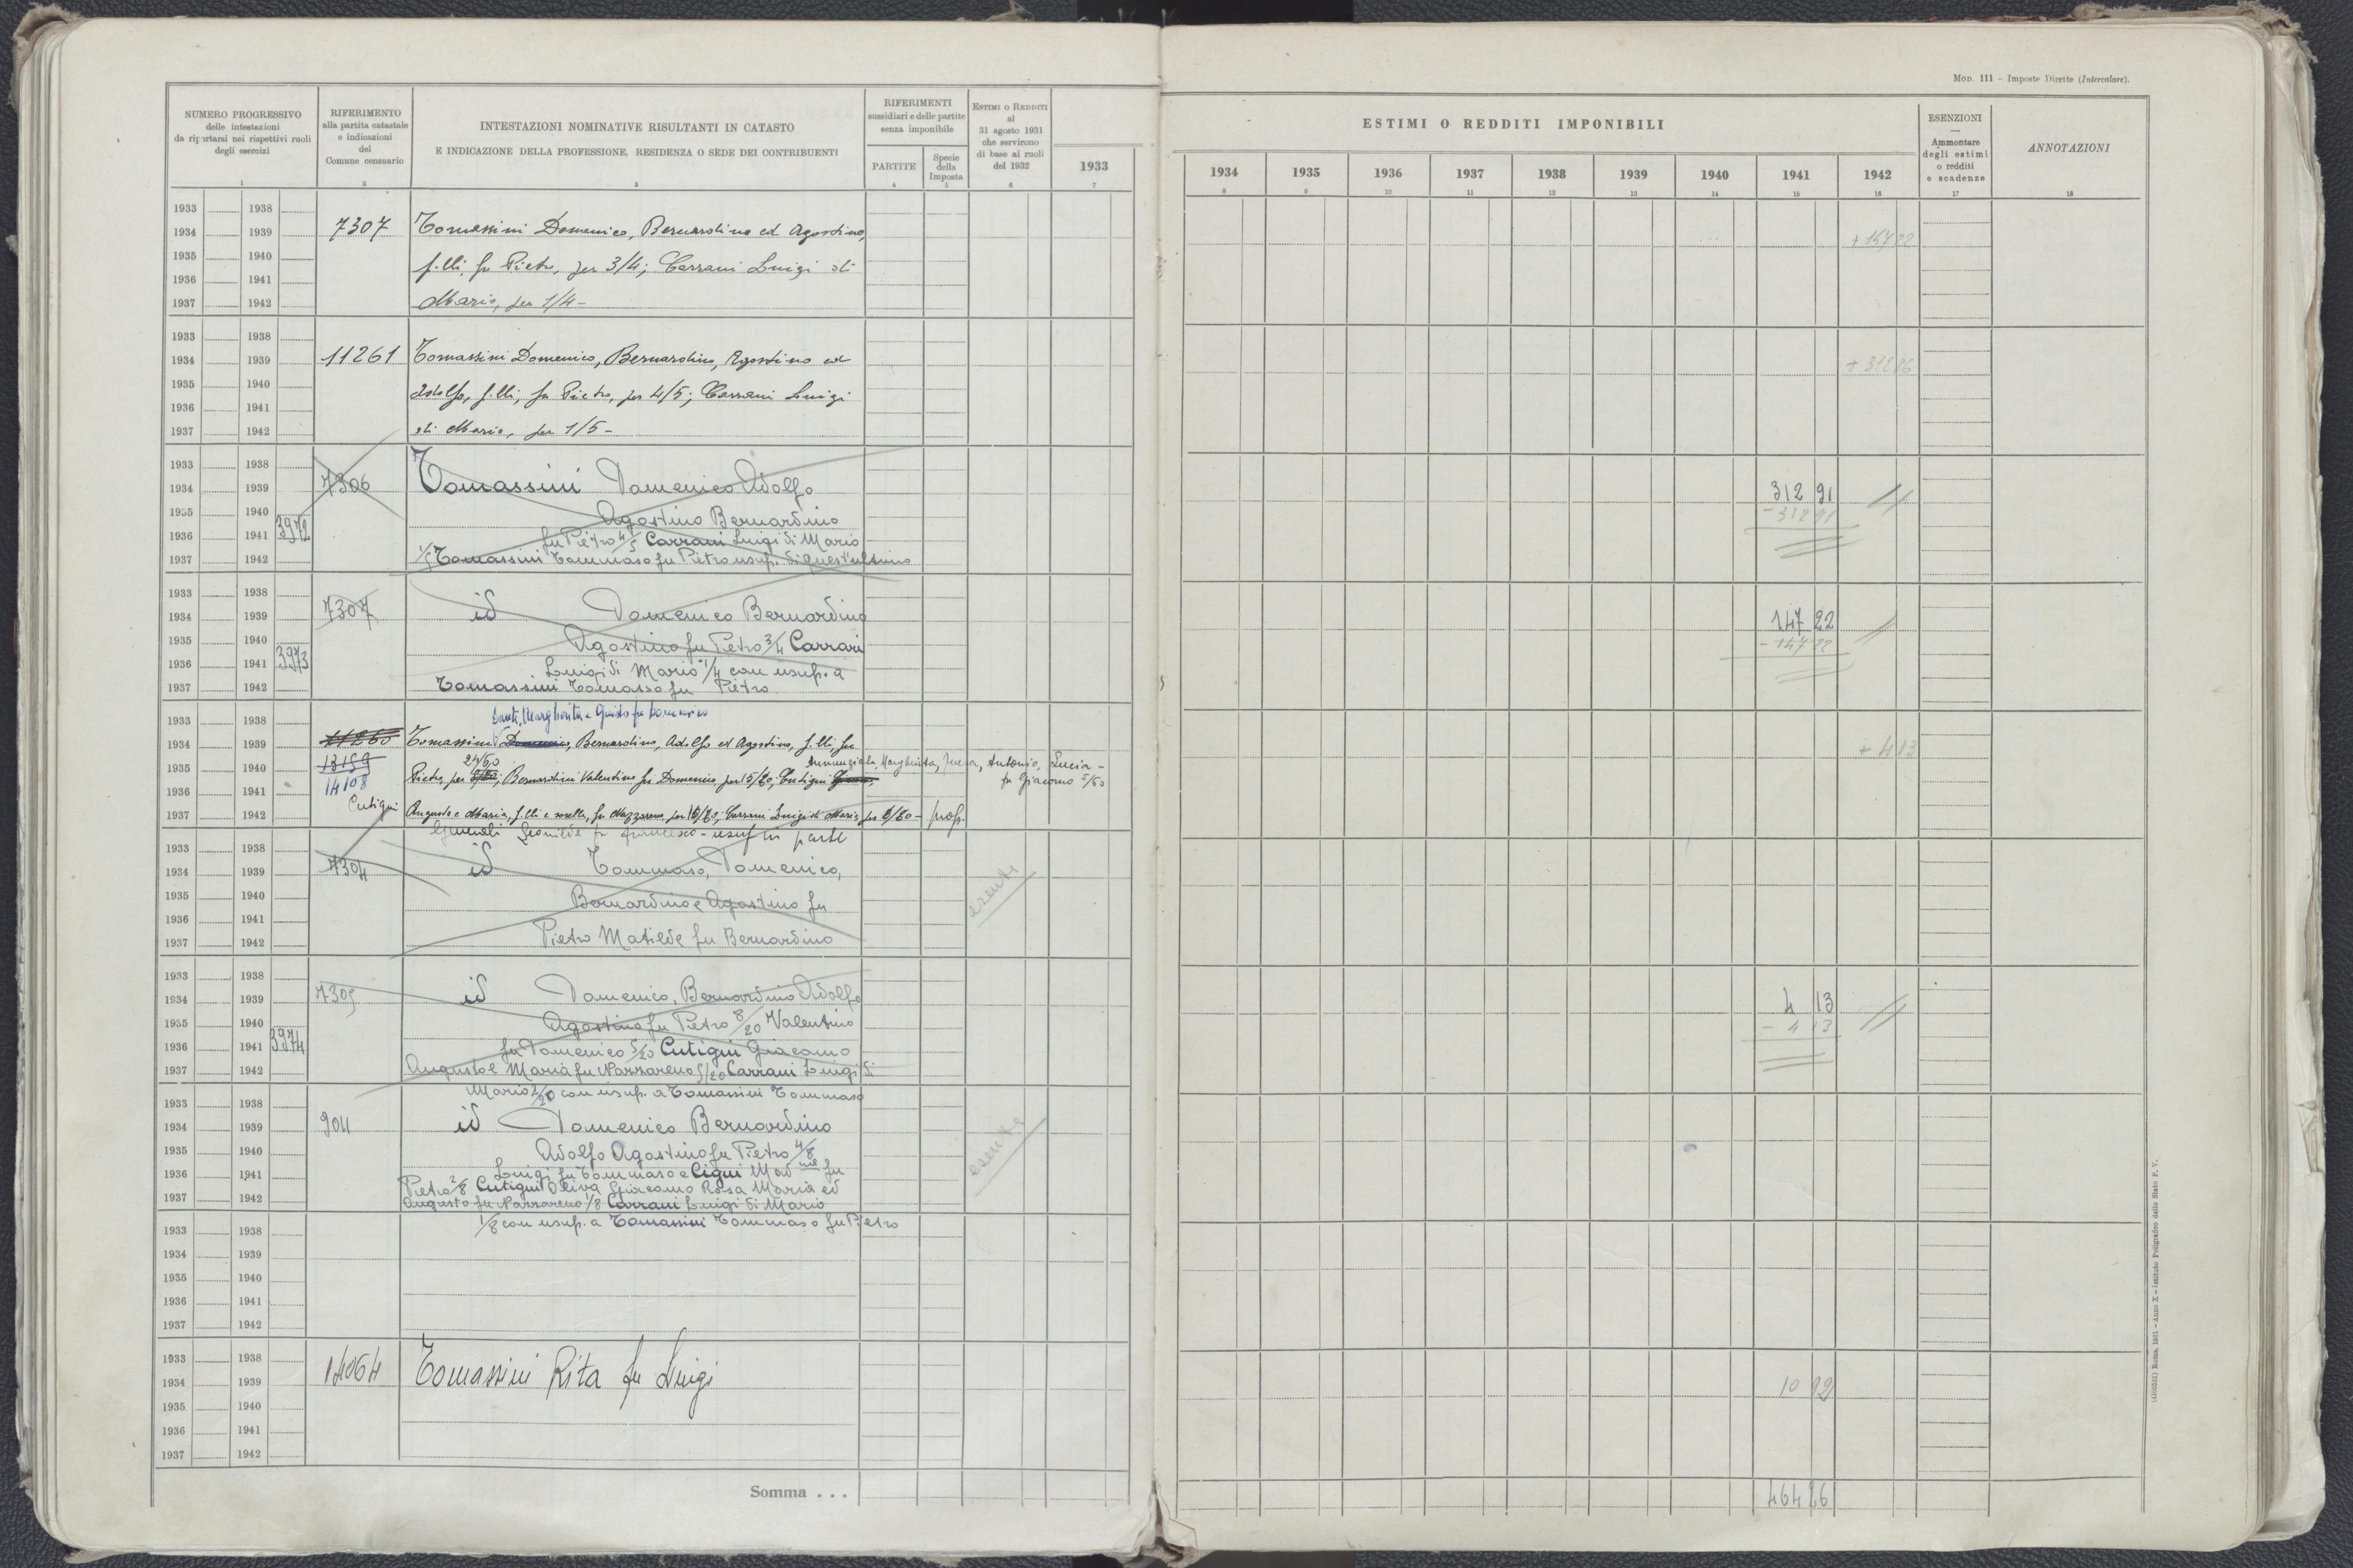 MOD. 111 - Imposte Dirette (Intercalare).
NUMERO PROGRESSIVO
delle intestazioni
da riportarsi nei rispettivi ruoli
degli esercizi
RIFERIMENTO
alla partita catastale
e indicazioni
del
Comune censuario
INTESTAZIONI NOMINATIVE RISULTANTI IN CATASTO
E INDICAZIONE DELLA PROFESSIONE, RESIDENZA O SEDE DEI CONTRIBUENTI
RIFERIMENTI
sussidiari e delle partite
senza imponibile
PARTITE
Specie
della
Imposta
ESTIMI O REDDITI
al
31 agosto 1931
che servirono
di base ai ruoli
del 1932
1933
ESTIMI O REDDITI IMPONIBILI
1934 1935 1936 1937 1938 1939 1940 1941 1942
ESENZIONI
—
Ammontare
degli estimi
o redditi
e scadenze
ANNOTAZIONI
1 2 3 4 5 6 7 8 9 10 11 12 13 14 15 16 17 18
1933 1938
1934 1939 7307 Tomassini Domenico, Bernardino ed Agostino, +147 22
1935 1940 f.lli, fu Pietro, per 3/4; Carrani Luigi di
1936 1941
1937 1942 Mario, per 1/4 -
1933 1938
1934 1939 11261 Tomassini Domenico, Bernardino, Agostino ed +312 86
1935 1940 Adolfo, f.lli, fu Pietro, per 4/5; Carrani Luigi
1936 1941
1937 1942 di Mario, per 1/5 -
1933 1938
1934 1939 7306 Tomassini Domenico Adolfo 312 91
1935 1940 Agostino Bernardino - 312 91
1936 1941 3972 fu Pietro 4/5 Carrani Luigi di Mario
1937 1942 1/5 Tomassini Tommaso fu Pietro usuf. di quest'ultimo
1933 1938
1934 1939 7307 id Domenico Bernardino 147 22
1935 1940 Agostino fu Pietro 3/4 Carrani - 147 22
1936 1941 3973 Luigi di Mario 1/4 con usuf. a
1937 1942 Tomassini Tomasso fu Pietro
1933 1938 Santi, Margherita e Guido fu Domenico
1934 1939 11260 Tomassini Domenico, Bernardino, Adolfo ed Agostino, f.lli, fu + 4 13
1935 1940 13159 24/60 Annunziata, Margherita, Antonio, Lucia -
Pietro, per; Bernardini Valentino fu Domenico, per 15/60, Cutigni
1936 1941 14108 fu Giacomo 5/60
1937 1942 Cutigni Augusto e Maria, f.lli e sorella, fu Nazzareno, per 10/60; Carrani Luigi di Mario per 6/60 - prop.
Leonilde fu Francesco - usuf in parte
1933 1938
1934 1939 7304 id Tommaso, Domenico, esente
1935 1940 Bernardino e Agostino fu
1936 1941
1937 1942 Pietro Matilde fu Bernardino
1933 1938
1934 1939 7305 id Domenico, Bernardino Adolfo 4 13
1935 1940 Agostino fu Pietro 8/20 Valentino - 4 13
1936 1941 3974 fu Domenico 5/20 Cutigni Giacomo
1937 1942 Augusto e Maria fu Nazzareno 5/20 Carrani Luigi di
Mario 2/20 con usuf. a Tomassini Tommaso
1933 1938
1934 1939 904 id Domenico Bernardino esente
1935 1940 Adolfo Agostino fu Pietro 4/8
1936 1941 Luigi fu Tommaso e Cigni Mad fu
1937 1942 Pietro 2/8 Cutigni Oliva Giacomo Rosa Maria ed
Augusto fu Nazzareno 1/8 Carrani Luigi di Mario
1/8 con usuf. a Tomassini Tommaso fu Pietro
1933 1938
1934 1939
1935 1940
1936 1941
1937 1942
1933 1938
1934 1939 14064 Tomassini Rita fu Luigi
1935 1940
1936 1941
1937 1942
Somma . . . 464 26
(4103531) Roma, 1931 - Anno X - Istituto Poligrafico dello Stato P. V.